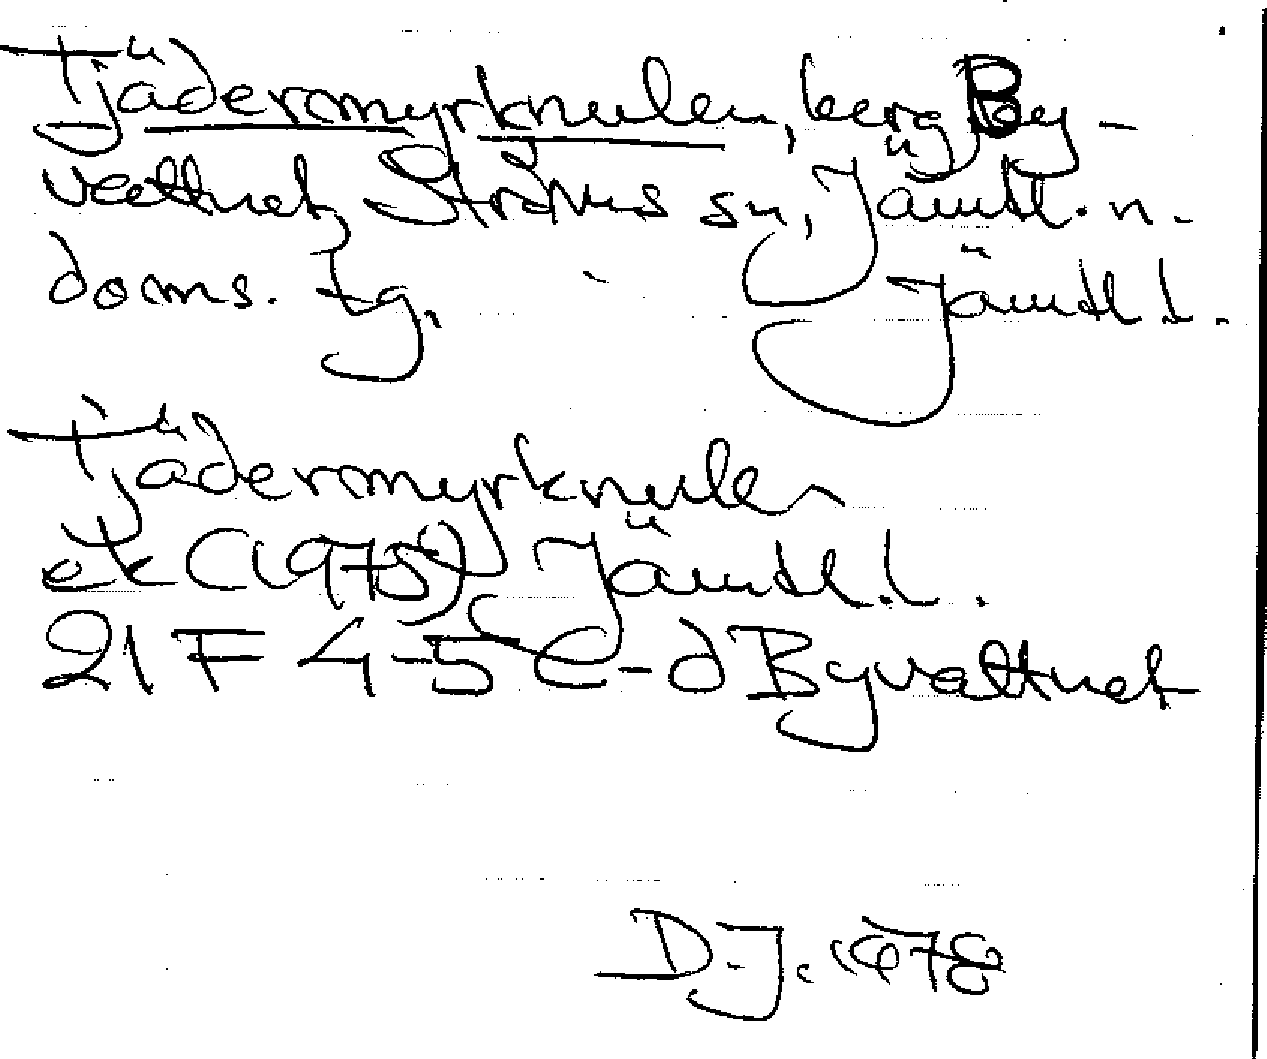 Tjädermyrknulen, berg By-
vattnet, Ströms sn, Jämtl. n.
doms. tg. Jämtl. l.
Tjädermyrknulen
ek (1975) Jämtl. l.
21 F 4-5 c-d Byvattnet
D.J. 1978